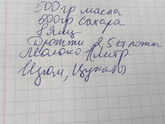 500гр масла
500гр сахара
8 яиц
Дрожжи 2,5 ст ложки
Молоко 1 литр
Изюм, Цукаты